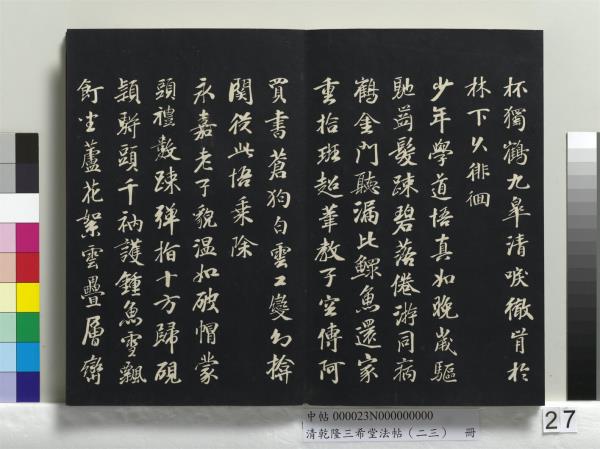 杯獨鶴九皋清唳徹肯於
林下久徘徊
少年學道悟真如晚歲驅
馳齒髮疎碧落倦游同病
鶴金門聽漏比鰥魚還家
重拾班超筆教子空傳阿
買書蒼狗白雲工變幻
閱從此悟乘除
永嘉老子貌温如破帽蒙
頭禮數疎彈指十方歸硯
頭千衲護鍾魚雪飄
飣坐蘆花絮雲疊層巒
中帖 000023N000000000
清乾隆三希堂法帖（二三） 冊
27